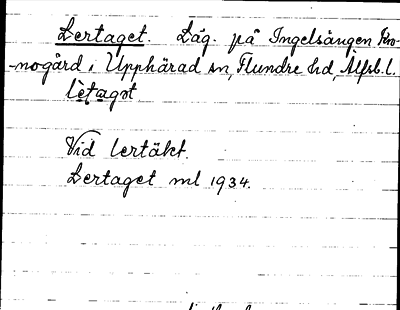 Lertaget. Läg. på Ingelsängen Kro-
nogård i Upphärad sn, Flundre hd, Älfsb. l.
lètagət
Vid lertäkt.
Lertaget ml 1934.